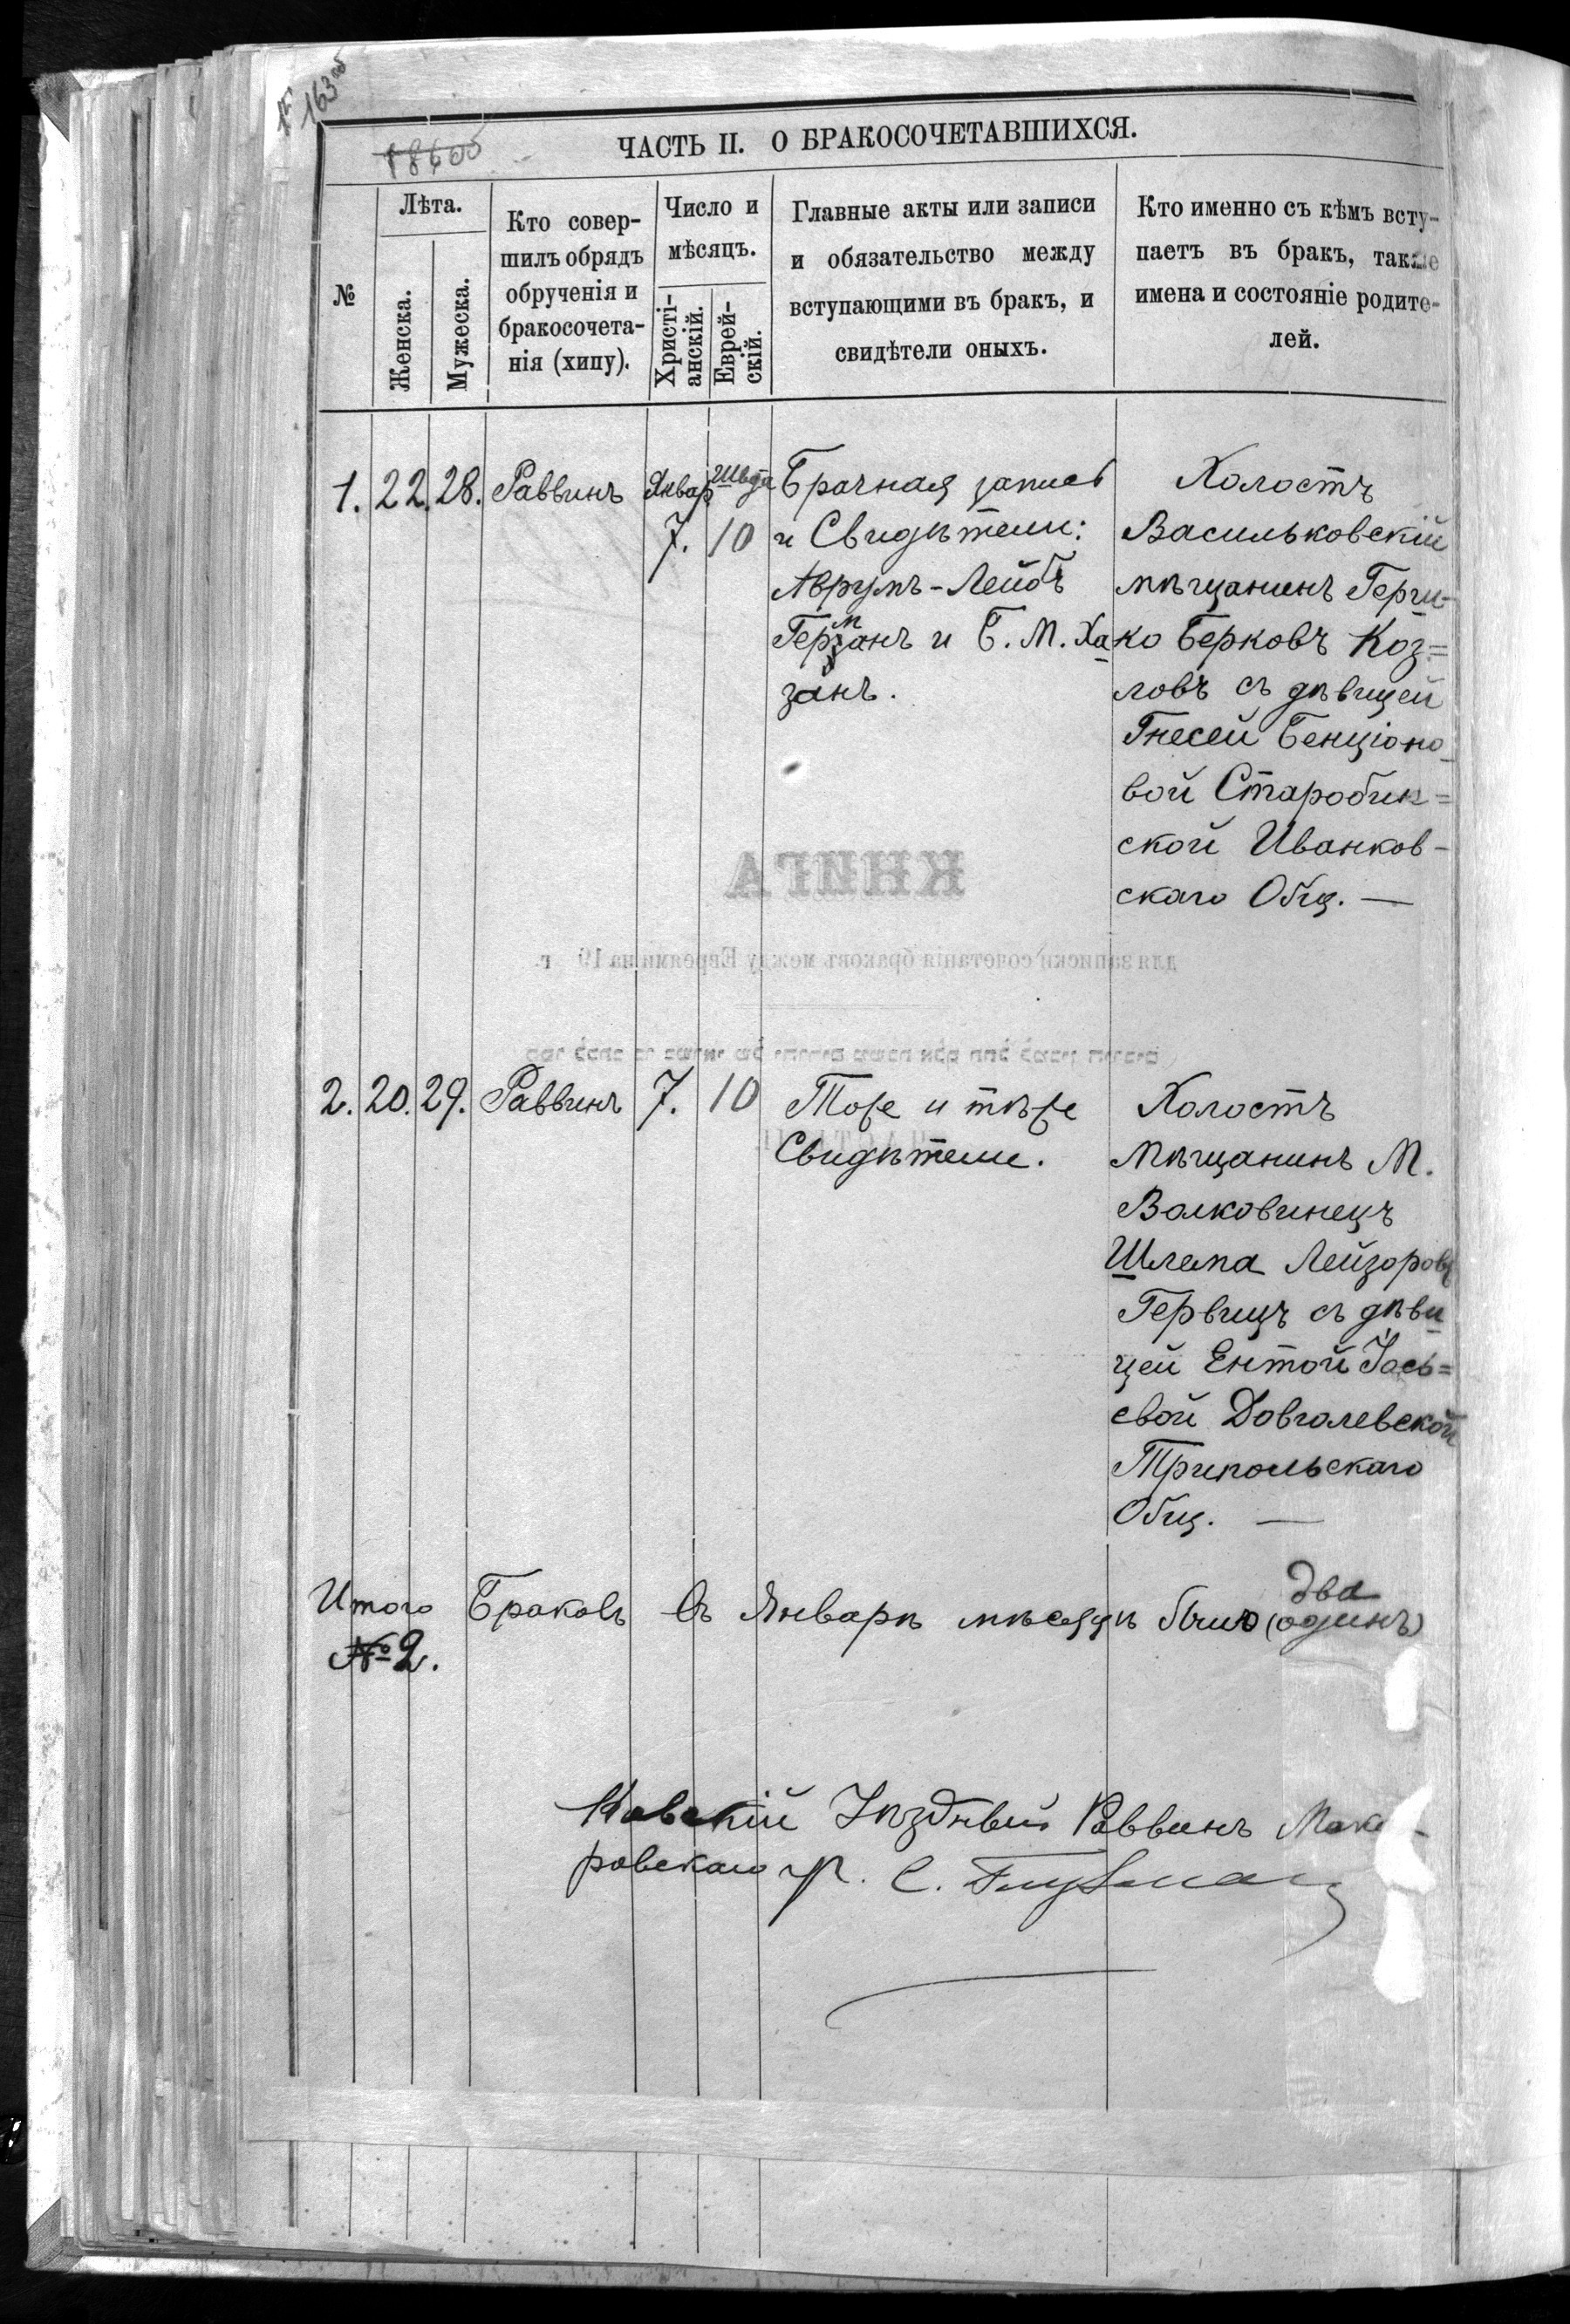 163 об
18600
ЧАСТЬ II. О БРАКОСОЧЕТАВШИХСЯ.
№
Лѣта.
Женска.
Мужеска.
Кто совер-
шилъ обрядъ
обрученія и
бракосочета-
нія (хипу).
Число и
мѣсяцъ.
Христі-
анскій.
Еврей-
скій.
Главные акты или записи
и обязательство между
вступающими въ бракъ, и
свидѣтели оныхъ.
Кто именно съ кѣмъ всту-
паетъ въ бракъ, также
имена и состояніе родите-
лей.
1. 22. 28. Раввинъ Январ 7. Швта 10
Брачная запись
и Свидѣтели:
Аврумъ-Лейбъ
Германъ и Б. М. Ха
занъ.
Холостъ
Васильковскій
мѣщанинъ Герш-
ко Берковъ Коз=
ловъ съ дѣвицей
Гнесей Бенціоно
вой Старобин=
ской Иванков-
скаго Общ. —
КНИГА
для записки сочетанія браковъ между Евреями на 19 г.
2. 20. 29. Раввинъ 7. 10
Тоже и тѣже
Свидѣтели.
Холостъ
Мѣщанинъ М.
Волковинецъ
Шлема Лейзоровъ
Гервицъ съ дѣви
цей Ентой Іось=
евой Довгалевской
Трипольскаго
Общ. —
Итого Браковъ въ Январѣ мѣсяцѣ было (одинъ) два
№ 2.
Кіевскій Уѣздный Раввинъ Мака-
ровскаго уч. С.